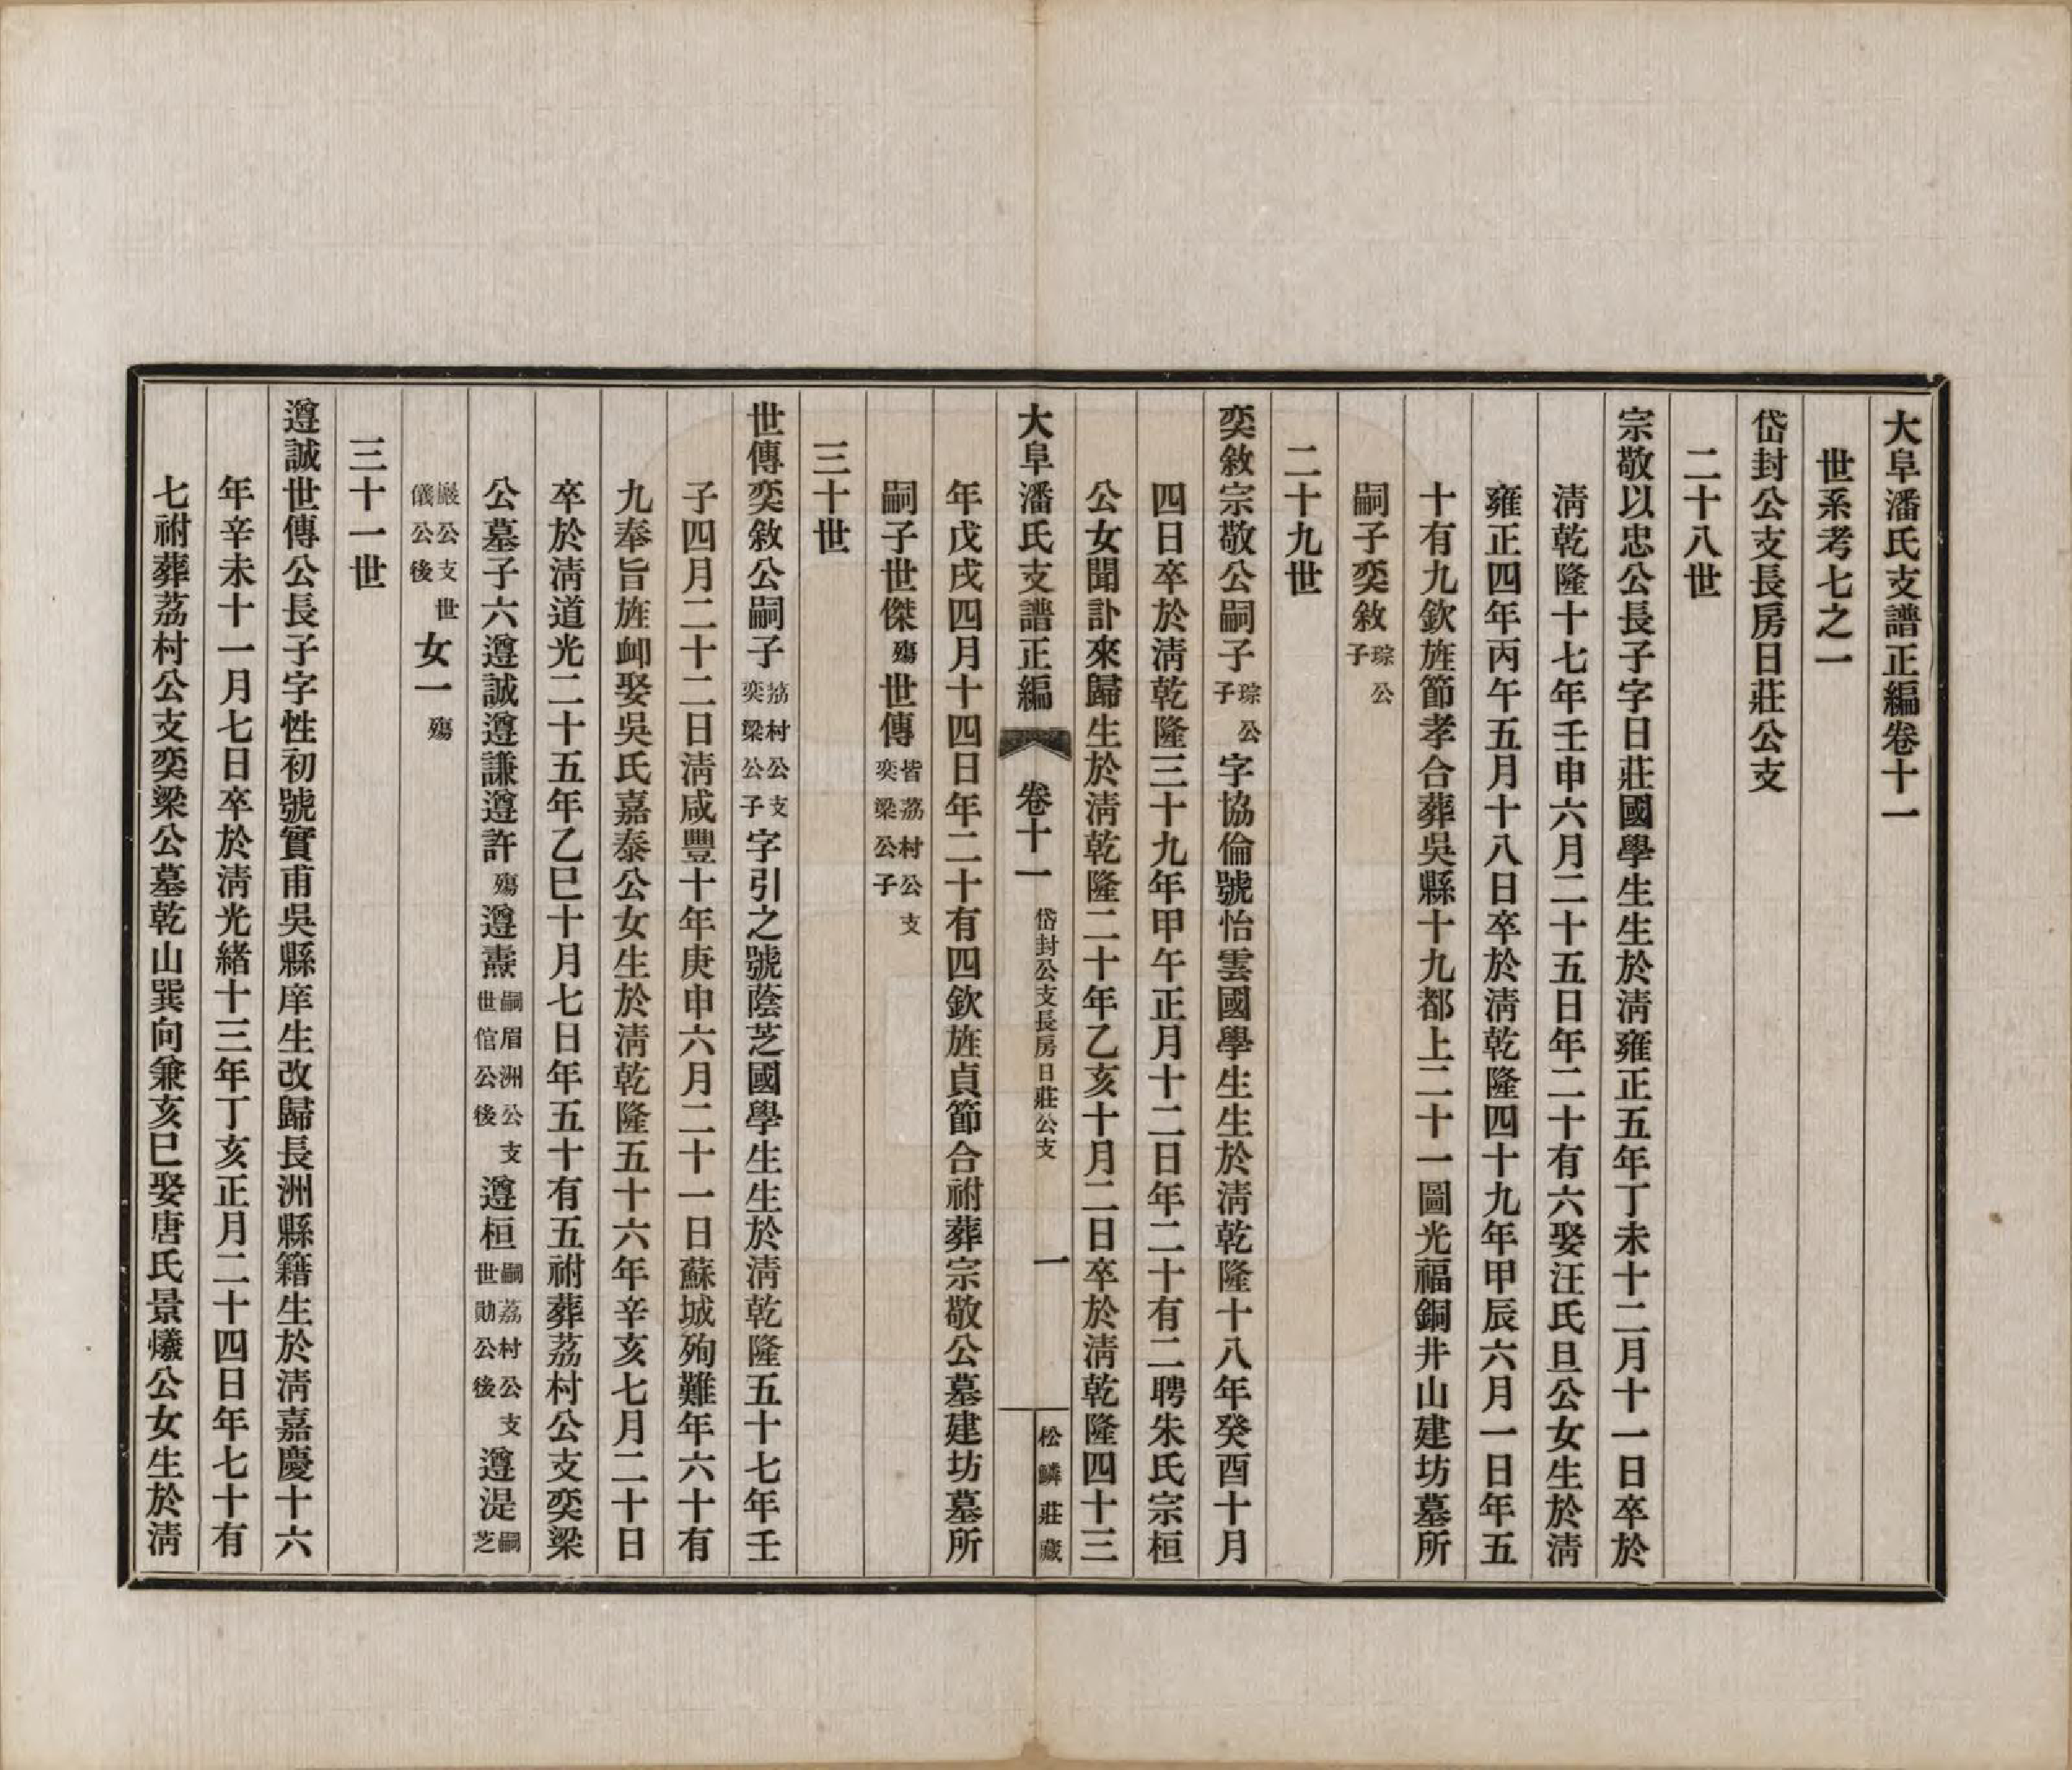 大阜潘氏支譜正編卷十一
世系考七之一
岱封公支長房日莊公支
二十八世
宗敬以忠公長子字日莊國學生生於淸雍正五年丁未十二月十一日卒於
淸乾隆十七年壬申六月二十五日年二十有六娶汪氏旦公女生於淸
雍正四年丙午五月十八日卒於淸乾隆四十九年甲辰六月一日年五
十有九欽旌節孝合葬吳縣十九都上二十一圖光福銅井山建坊墓所
嗣子奕敘琮公子
二十九世
奕敘宗敬公嗣子琮公子字協倫號怡雲國學生生於淸乾隆十八年癸酉十月
四日卒於淸乾隆三十九年甲午正月十二日年二十有二聘朱氏宗桓
公女聞訃來歸生於淸乾隆二十年乙亥十月二日卒於淸乾隆四十三
大阜潘氏支譜正編 卷十一 岱封公支長房日莊公支 一 松鱗莊藏
年戊戌四月十四日年二十有四欽旌貞節合祔葬宗敬公墓建坊墓所
嗣子世傑殤世傳皆荔村公支奕梁公子
三十世
世傳奕敘公嗣子荔村公支奕梁公子字引之號蔭芝國學生生於淸乾隆五十七年壬
子四月二十二日淸咸豐十年庚申六月二十一日蘇城殉難年六十有
九奉旨旌卹娶吳氏嘉泰公女生於淸乾隆五十六年辛亥七月二十日
卒於淸道光二十五年乙巳十月七日年五十有五祔葬荔村公支奕梁
公墓子六遵誠遵謙遵許殤遵燾嗣眉洲公支世倌公後遵桓嗣荔村公支世勛公後遵湜嗣芝
巖公支世儀公後女一殤
三十一世
遵誠世傳公長子字性初號實甫吳縣庠生改歸長洲縣籍生於淸嘉慶十六
年辛未十一月七日卒於淸光緒十三年丁亥正月二十四日年七十有
七祔葬荔村公支奕梁公墓乾山巽向兼亥巳娶唐氏景爔公女生於淸